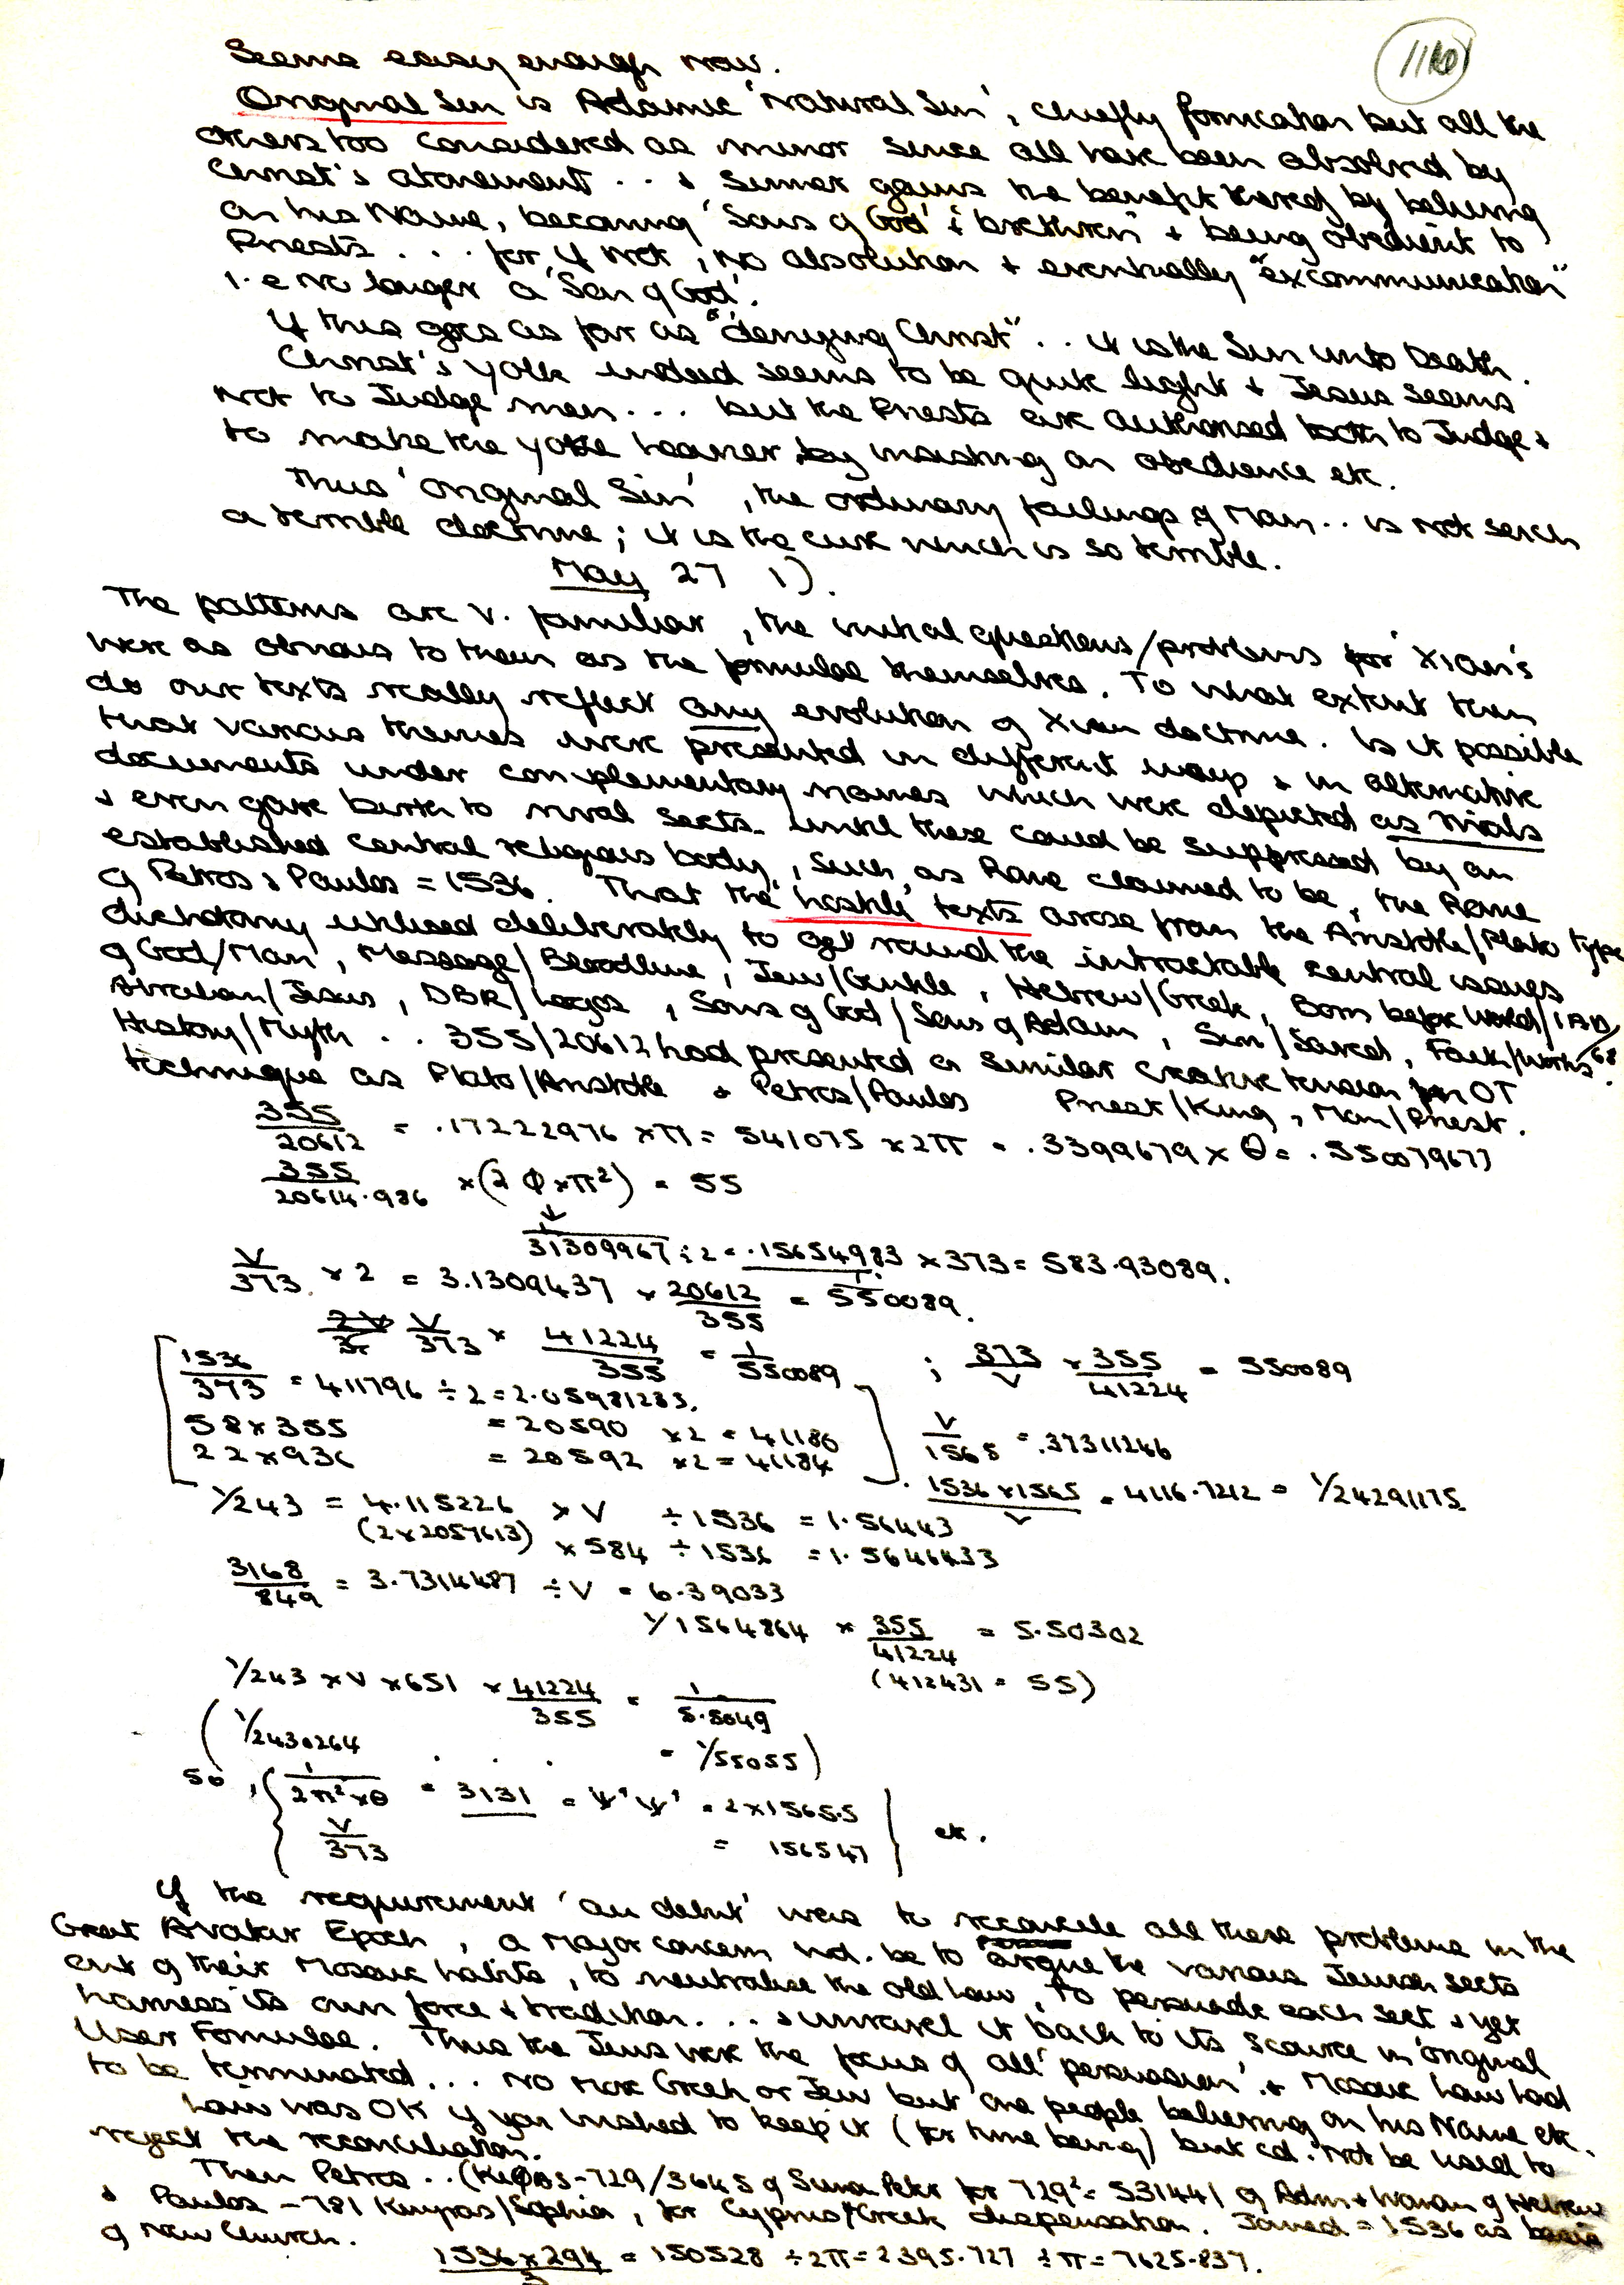 Seems easy enough now.
Original Sin is Adamic 'Natural Sin', chiefly fornication but all the
others too considered as minor since all have been absolved by
Christ's atonement . . & Sinner gains the benefit thereof by believing
on his Name, becoming 'Sons of God' & 'brethren' & being obedient to
Priests . . . for, if not, no absolution & eventually "excommunication"
i.e no longer a 'Son of God'.
If this goes as far as "denying Christ" . . it is the Sin unto Death.
Christ's yolk indeed seems to be quite light & Jesus seems
not to Judge men . . . but the Priests are authorised both to Judge &
to make the yoke heavier by insisting on obedience etc.
Thus 'Original Sin', the ordinary failings of Man . . is not such
a terrible doctrine; it is the cure which is so terrible.
May 27 1).
The patterns are v. familiar, the initial questions/problems for Xian's
were as obvious to them as the formulae themselves. To what extent then
do our texts really reflect any evolution of Xian doctrine. Is it possible
that various themes were presented in different ways & in alternative
documents under complementary names which were depicted as rivals
& even gave birth to rival sects until these could be suppressed by an
established central religious body, such as Rome claimed to be, the Rome
of Petros & Paulos = 1536. That the 'hostile' texts arose from the Aristotle/Plato type
dichotomy utilised deliberately to get round the intractable central issues
of God/Man, Message/Bloodline, Jew/Gentile, Hebrew/Greek, Born before World/1AD/68
Abraham/Jesus, DBR/Logos, Sons of God/Sons of Adam, Sin/Saved, Faith/Works.
History/Myth . . 355/20612 had presented a similar creative tension for OT
technique as Plato/Aristotle & Petros/Paulos Priest/King, Man/Priest.
355/20612 = .17222976 x π = 541075 x 2π = .3399679 x θ = .550079677
355/20614.986 x (2 Φ x π²) = 55
1/31309967 ÷ 2 = .15654983 x 373 = 583.93089.
V/373 x 2 = 3.1309437 x 20612/355 = 550089.
V/373 x 41224/355 = 1/550089 ; 373/V x 355/41224 = 550089
1536/373 = 411796 ÷ 2 = 2.05981233.
58 x 355 = 20590 x 2 = 41180
22 x 936 = 20592 x 2 = 41184
V/1565 = .37311246
1536 x 1565/V = 4116.7212 = 1/24291175
1/243 = 4.115226 x V ÷ 1536 = 1.56443
(2 x 2057613) x 584 ÷ 1536 = 1.5646433
3168/849 = 3.7314487 ÷ V = 6.39033
1/1564864 x 355/41224 = 5.50302
(412431 = 55)
1/243 x V x 651 x 41224/355 = 1/5.5049
(1/2430264 . . . = 1/55055)
so, 1/2π² x θ = 3131 = Ψ' Ψ' = 2 x 1565.5
V/373 = 156547 etc.
If the requirement 'au debut' was to reconcile all these problems in the
Great Avatar Epoch, a major concern wd. be to argue the various Jewish sects
out of their Mosaic habits, to neutralise the old law, to persuade each sect & yet
harness its own force & tradition . . . & unravel it back to its source in 'original
User Formulae. Thus the Jews were the focus of all 'persuasion', & Mosaic Law had
to be terminated . . . No more Greek or Jew but one people believing on his Name etc.
Law was OK if you wished to keep it (for time being) but cd. not be used to
reject the reconciliation.
Then Petros . . (Kephas - 729/3645 of Simon Peter for 729² = 531441 of Adm & Woman of Hebrew
& Paulos - 781 Kupros/Sophia, for Cyprus/Greek dispensation. Joined = 1536 as basis
of new Church.
1536 x 294/3 = 150528 ÷ 2π = 2395.727 ÷ π = 7625.837.